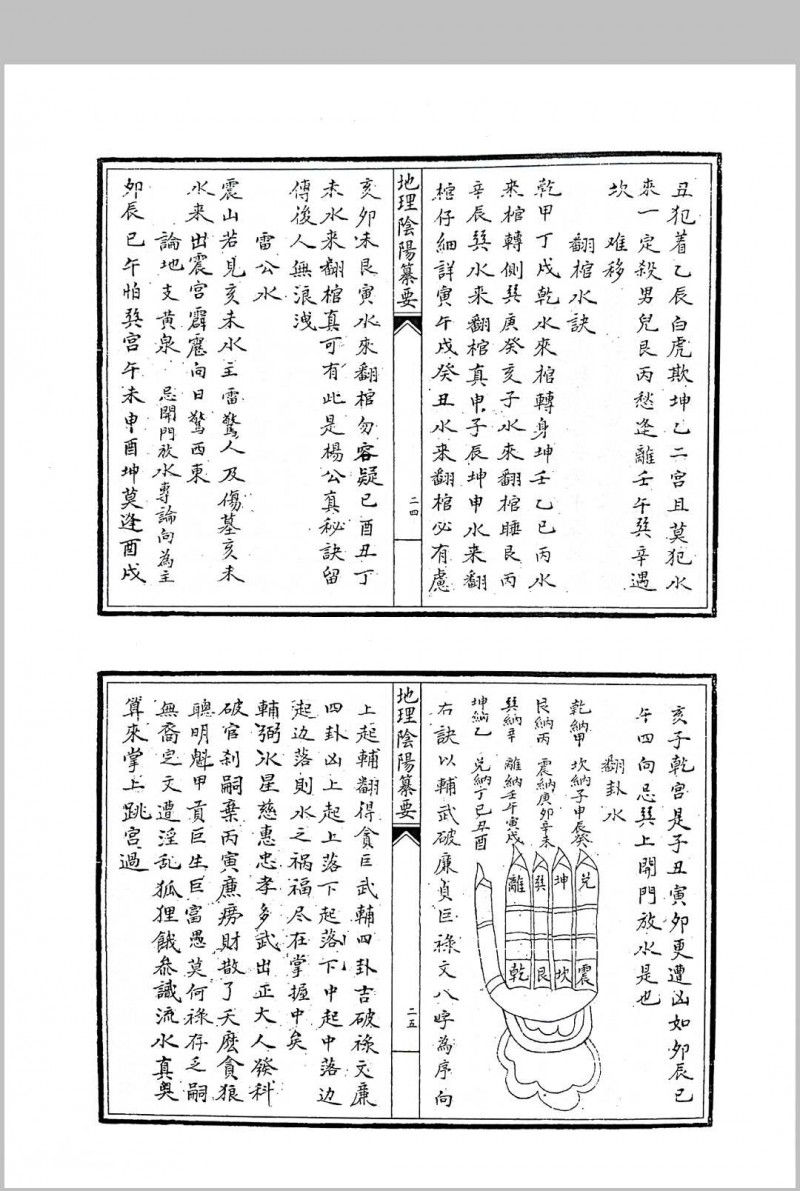 丑犯着乙辰白虎欺坤乙二宮且莫犯水
來一定殺男兒艮丙愁逢離壬午巽辛遇
坎難移
翻棺水訣
乾甲丁戌乾水來棺轉身坤壬乙巳丙水
來棺轉側巽庚癸亥子水來翻棺睡艮丙
辛辰巽水來翻棺真申子辰坤申水來翻
棺仔細詳寅午戌癸丑水來翻棺必有處
地理陰陽纂要
二四
亥卯未艮寅水來翻棺勿容疑巳酉丑丁
未水來翻棺真可有此是楊公真秘訣留
傳後人無浪洩
雷公水
震山若見亥未水主雷驚人及傷墓亥未
水來出震宮霹靂應向日驚西東
論地支黃泉 忌開門放水專論向為主
卯辰巳午怕巽宮午未申酉坤莫逢酉戌
亥子乾宮是子丑寅卯更遭凶如卯辰巳
午四向忌巽上開門放水是也
翻卦水
乾納甲 坎納子申辰癸
艮納丙 震納庚卯辛未
巽納辛 離納壬午寅戌
坤納乙 兌納丁巳丑酉
離 巽 坤 兌
乾 艮 坎 震
右訣以輔武破廉貞巨祿文八字為序向
地理陰陽纂要
二五
上起輔翻得貪巨武輔四卦吉破祿文廉
四卦凶上起上落下起落下中起中落边
起边落則水之禍福尽在掌握中矣
輔弼水星慈惠忠孝多武出正大人發科
破官刹嗣棄丙寅廉癆財散了天麽貪狼
聰明魁甲貢巨生巨富愚莫何祿存乏嗣
無裔定文遭淫乱狐狸餓参識流水真奥
算來掌上跳宮過